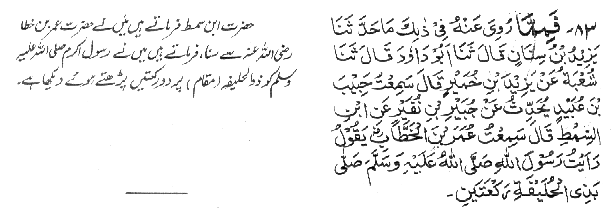 ۸۳- فَمِمَّا رُوِیَ عَنْهُ فِیْ ذٰلِكَ مَا حَدَّ ثَنَا
یَزِیْدُ بْنُ سِنَانٍ قَالَ ثَنَا اَبُوْ دَاوٗدَ قَالَ ثَنَا
شُعْبَةُ عَنْ یَزِیْدَ بْنِ خُمَیْرٍ قَالَ سَمِعْتُ حَبِیْبَ
بْنَ عُبَیْدٍ یُحَدِّثُ عَنْ جُبَیْرِ بْنِ نُفَیْرٍ عَنِ ابْنِ
السِّمْطِ قَالَ سَمِعْتُ عُمَرَ بْنَ الْخَطَّابِ یَقُوْلُ
رَاَیْتُ رَسُوْلَ اللهِ صَلَّی اللهُ عَلَیْهِ وَسَلَّمَ صَلّٰی
بِذِی الْحُلَیْفَةِ رَكْعَتَیْنِ-
حضرت ابن سمط فرماتے ہیں میں نے حضرت عمر بن خطا
رضی اللہ عنہ سے سنا، فرماتے ہیں میں نے رسول اکرم صلی اللہ علیہ
وسلم کو ذوالحلیفہ (مقام) پر دو رکعتیں پڑھتے ہوئے دیکھا ہے۔